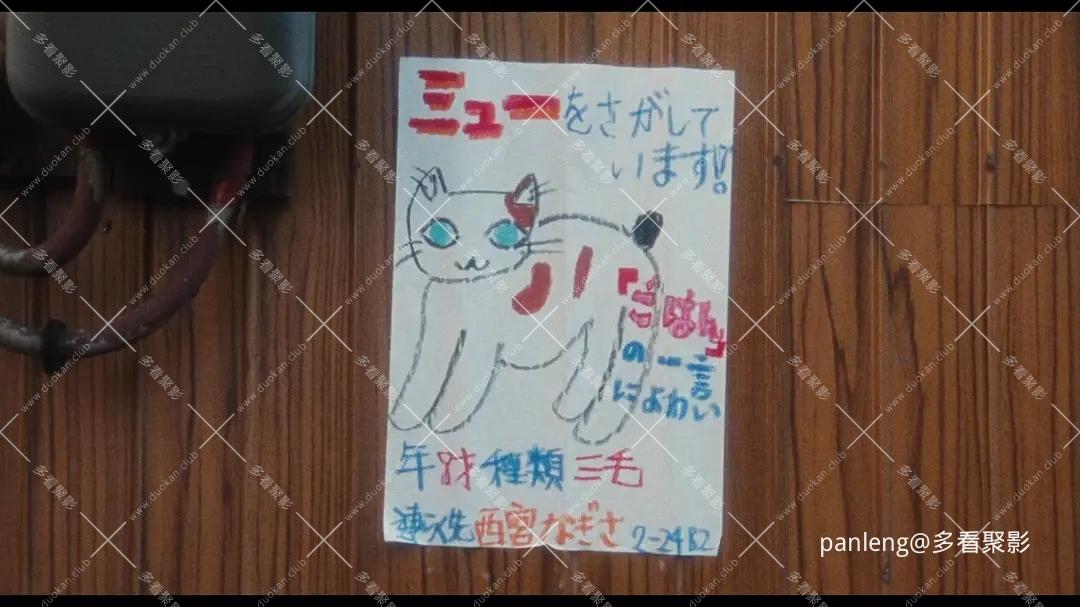 ミューをさがして
います!!
「ごはん」
の一言
によわい
年8才 種類 三毛
連入先 西宮なぎさ 2-2482
panleng@多看聚影
多看聚影
www.duokan.club